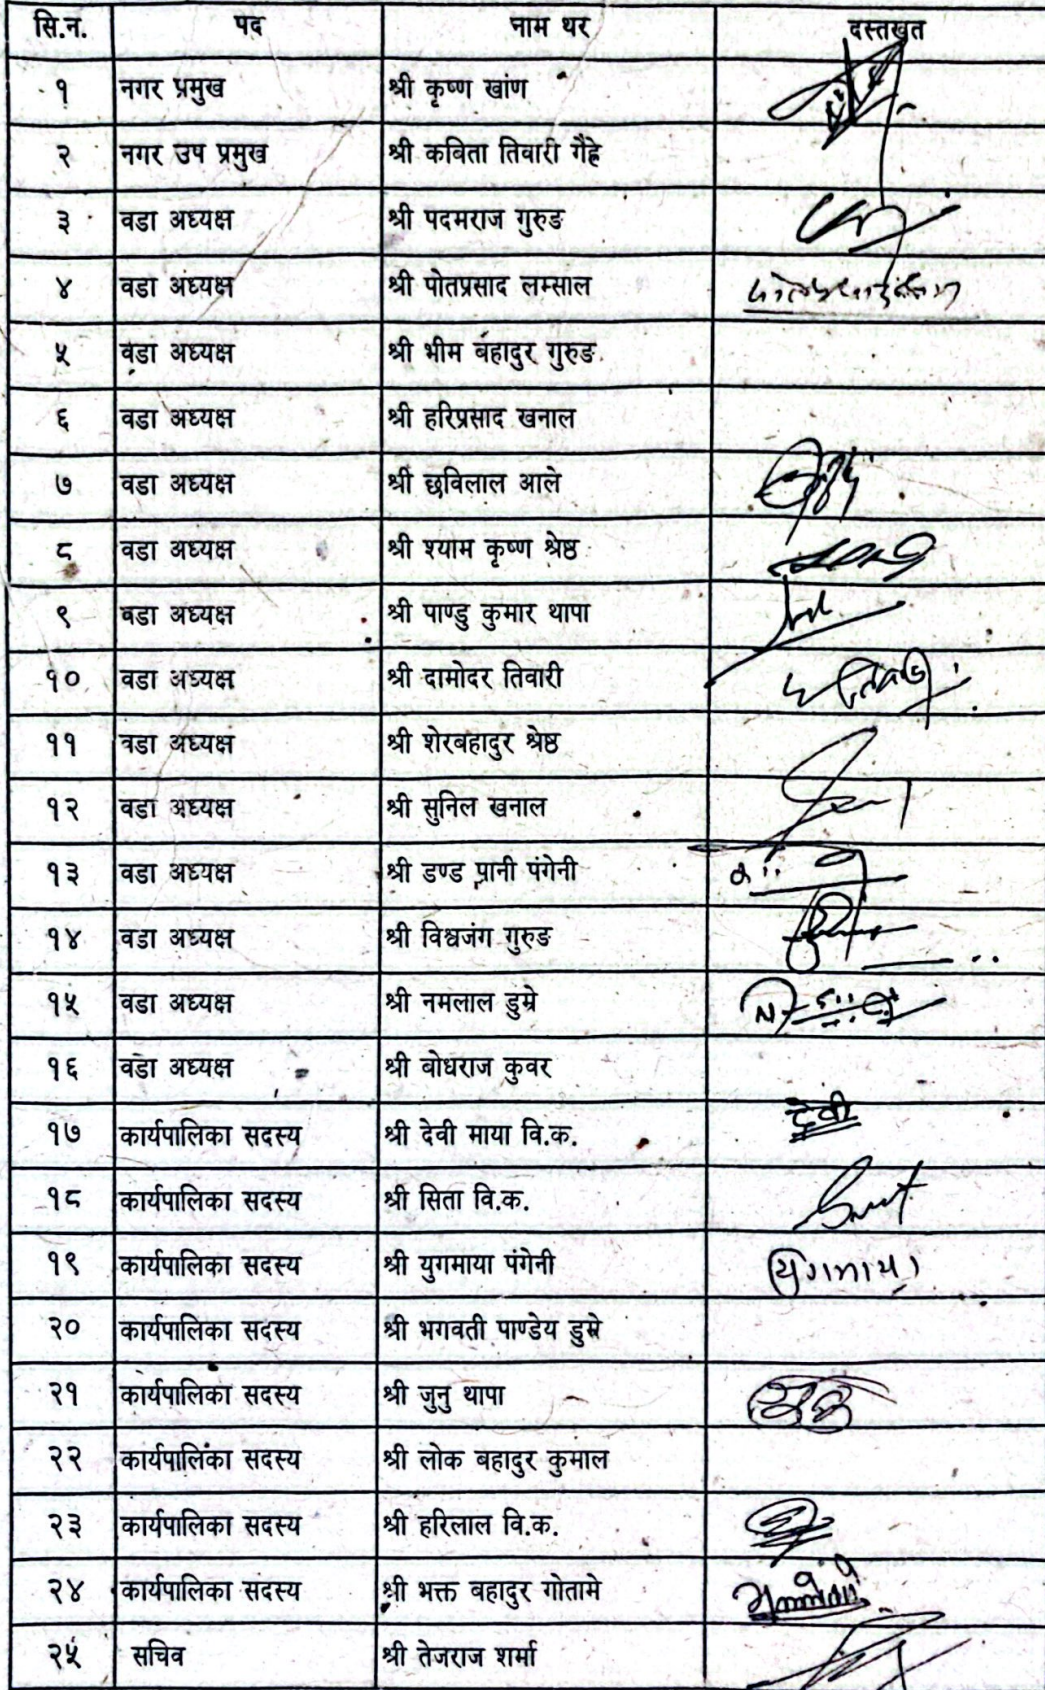 सि.न. पद नाम थर दस्तखुत
१ नगर प्रमुख श्री कृष्ण खांण
२ नगर उप प्रमुख श्री कबिता तिवारी गैह्रे
३ वडा अध्यक्ष श्री पदमराज गुरुङ
४ वडा अध्यक्ष श्री पोतप्रसाद लम्साल
५ वडा अध्यक्ष श्री भीम बहादुर गुरुङ
६ वडा अध्यक्ष श्री हरिप्रसाद खनाल
७ वडा अध्यक्ष श्री छविलाल आले
८ वडा अध्यक्ष श्री श्याम कृष्ण श्रेष्ठ
९ वडा अध्यक्ष श्री पाण्डु कुमार थापा
१० वडा अध्यक्ष श्री दामोदर तिवारी
११ वडा अध्यक्ष श्री शेरबहादुर श्रेष्ठ
१२ वडा अध्यक्ष श्री सुनिल खनाल
१३ वडा अध्यक्ष श्री डण्ड पानी पंगेनी
१४ वडा अध्यक्ष श्री विश्वजंग गुरुङ
१५ वडा अध्यक्ष श्री नमलाल डुम्रे
१६ वडा अध्यक्ष श्री बोधराज कुवर
१७ कार्यपालिका सदस्य श्री देवी माया वि.क. देवी
१८ कार्यपालिका सदस्य श्री सिता वि.क.
१९ कार्यपालिका सदस्य श्री युगमाया पंगेनी युगमाया
२० कार्यपालिका सदस्य श्री भगवती पाण्डेय डुम्रे
२१ कार्यपालिका सदस्य श्री जुनु थापा
२२ कार्यपालिका सदस्य श्री लोक बहादुर कुमाल
२३ कार्यपालिका सदस्य श्री हरिलाल वि.क.
२४ कार्यपालिका सदस्य श्री भक्त बहादुर गोतामे
२५ सचिव श्री तेजराज शर्मा